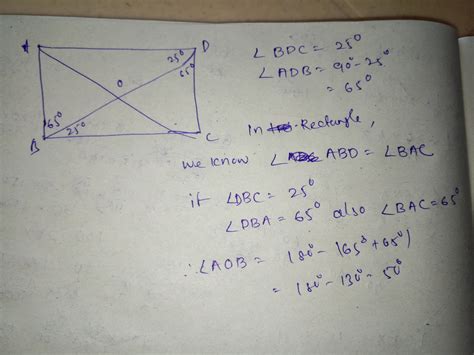 A D
25°
65°
O
65°
25°
B C
∠BDC = 25°
∠ADB = 90° - 25°
= 65°
In Rectangle,
we know ∠ABD = ∠BAC
if ∠DBC = 25°
∠DBA = 65° also ∠BAC = 65°
∴ ∠AOB = 180° - (65° + 65°)
= 180° - 130° - 50°